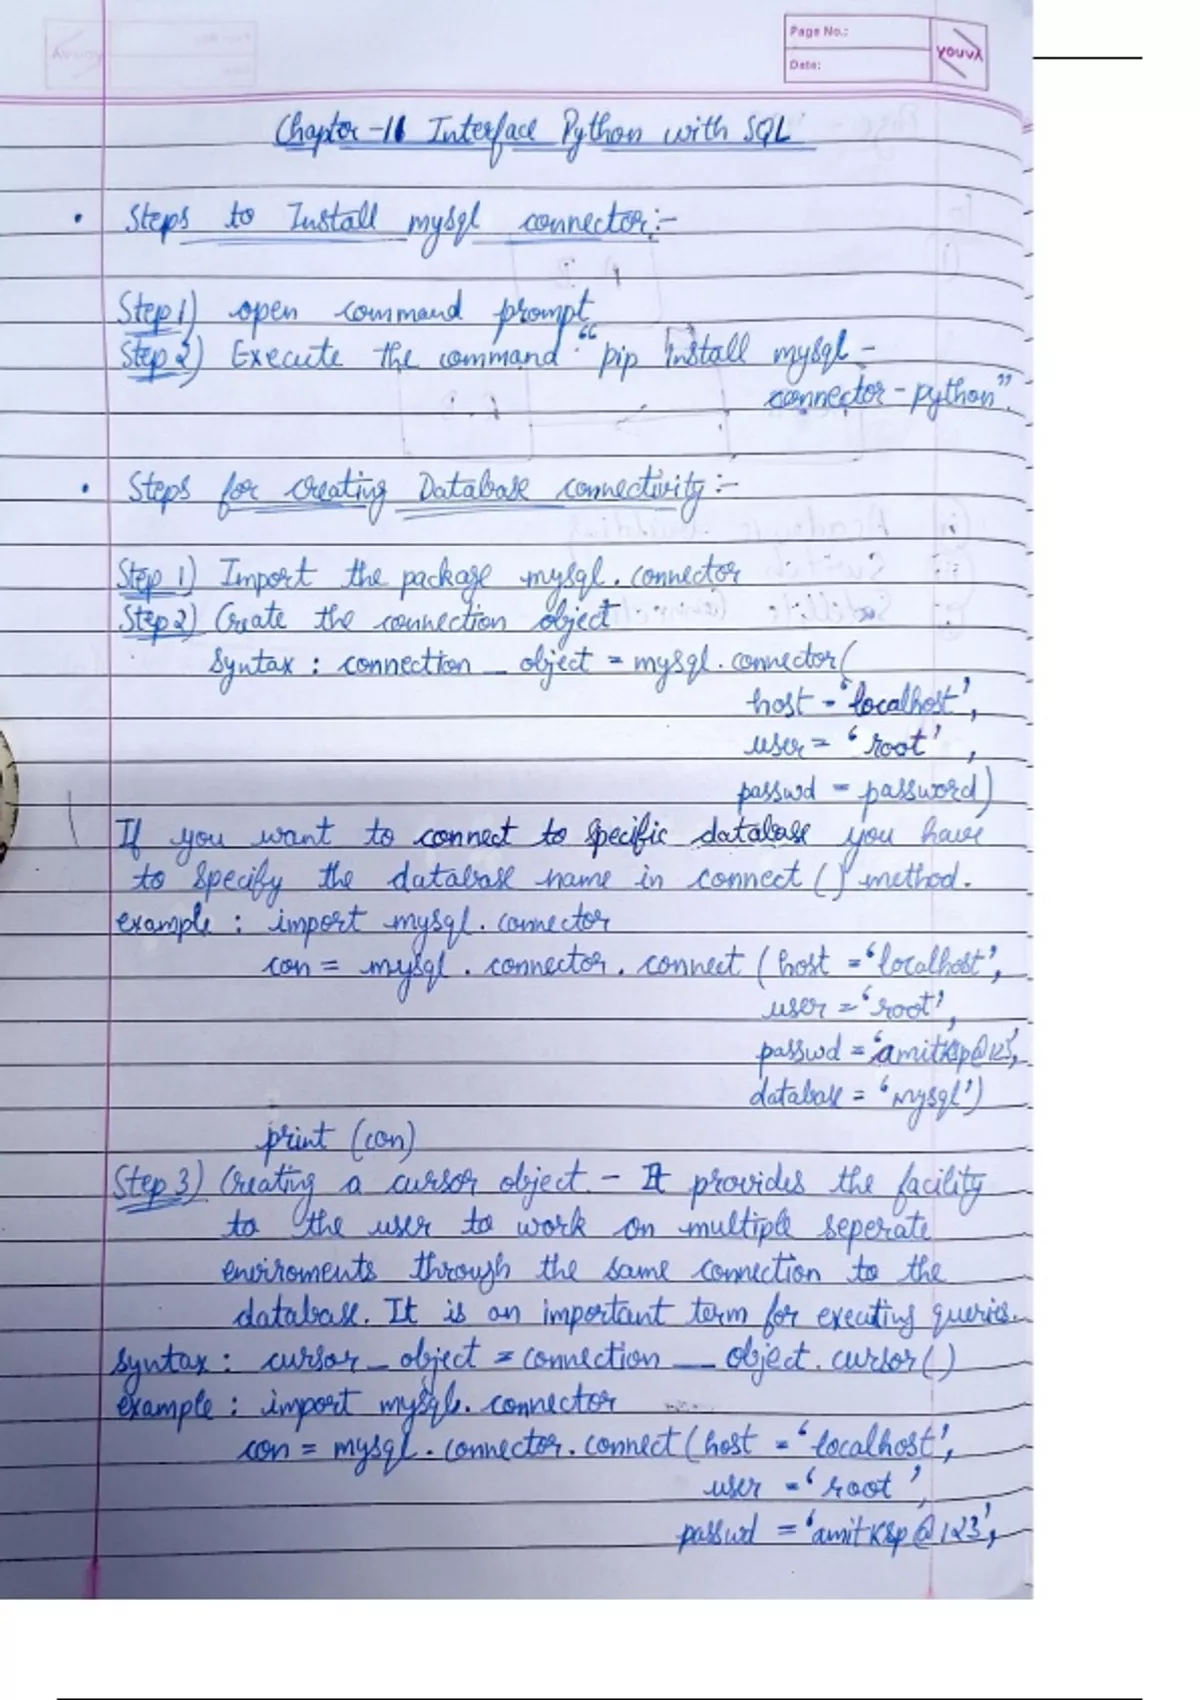 Page No.:
Date:
YOUVA
Chapter-11 Interface Python with SQL
• Steps to Install mysql connector:-
Step 1) open command prompt
Step 2) Execute the command "pip install mysql-
connector-python".
• Steps for creating Database connectivity:-
Step 1) Import the package mysql.connector
Step 2) Create the connection object
Syntax : connection_object = mysql.connector(
host = 'localhost',
user = 'root',
passwd = password)
If you want to connect to specific database you have
to specify the database name in connect() method.
example : import mysql.connector
con = mysql.connector.connect (host = 'localhost',
user = 'root',
passwd = 'amitksp@123',
database = 'mysql')
print (con)
Step 3) Creating a cursor object - It provides the facility
to the user to work on multiple seperate
enviroments through the same connection to the
database. It is an important term for executing queries.
syntax : cursor_object = connection_object.cursor()
example : import mysql.connector
con = mysql.connector.connect (host = 'localhost',
user = 'root',
passwd = 'amitksp@123',